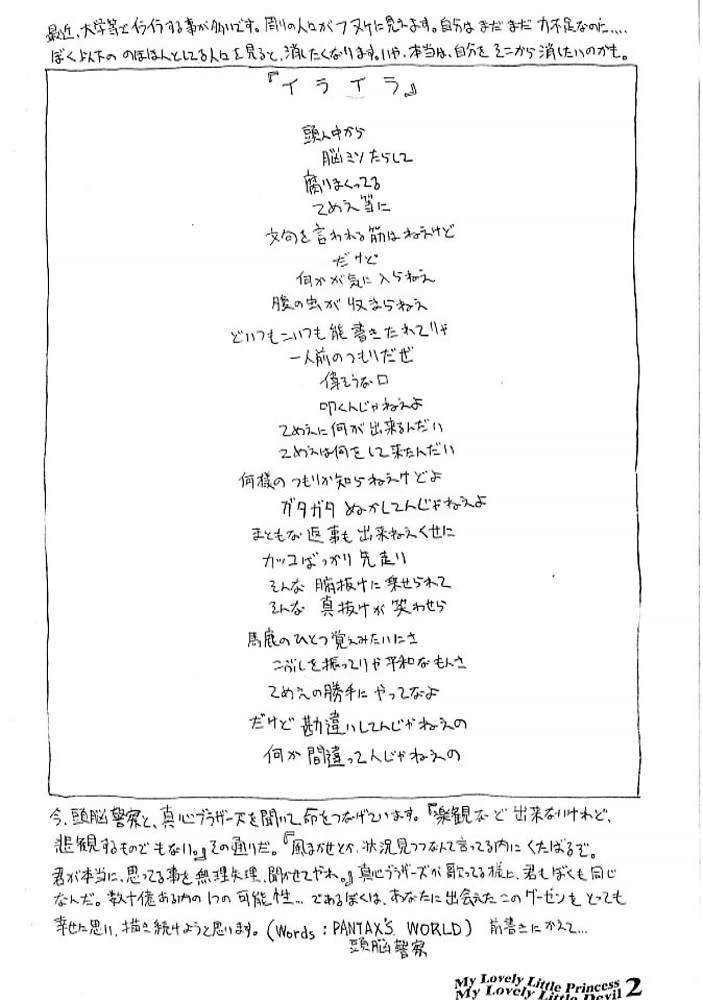 最近、大学等でイライラする事が多いです。周りの人口がフヌケに見えます。自分はまだまだ力不足なのに....
ぼく以下ののほほんとしてる人口を見ると、消したくなります。いや、本当は、自分をそこから消したいのかも。
『イライラ』
頭ん中から
脳ミソたらして
腐りまくってる
てめえ等に
文句を言われる筋はねえけど
だけど
何かが気に入らねえ
腹の虫が収まらねえ
どいつもこいつも能書きたれてりゃ
一人前のつもりだぜ
偉そうな口
叩くんじゃねえよ
てめえに何が出来るんだい
てめえは何をして来たんだい
何様のつもりか知らねえけどよ
ガタガタぬかしてんじゃねえよ
まともな返事も出来ねえくせに
カッコばっかり先走り
そんな腑抜けに乗せられて
そんな真抜けが笑わせら
馬鹿のひとつ覚えみたいにさ
こぶしを振ってりゃ平和なもんさ
てめえの勝手にやってなよ
だけど勘違いしてんじゃねえの
何か間違ってんじゃねえの
今、頭脳警察と、真心ブラザーズを聞いて、命をつなげています。『楽観など出来ないけれど、
悲観するものでもない。』その通りだ。『風まかせとか、状況見つつなんて言ってる内にくたばるぞ。
君が本当に、思ってる事を無理矢理、聞かせてやれ。』真心ブラザーズが歌ってる様に、君もぼくも同じ
なんだ。数十億ある内の1つの可能性... であるぼくは、あなたに出会えたこのグーゼンをとっても
幸せに思い、描き続けようと思います。(Words : PANTAX'S WORLD) 前書きにかえて...
頭脳警察
My Lovely Little Princess
My Lovely Little Devil 2